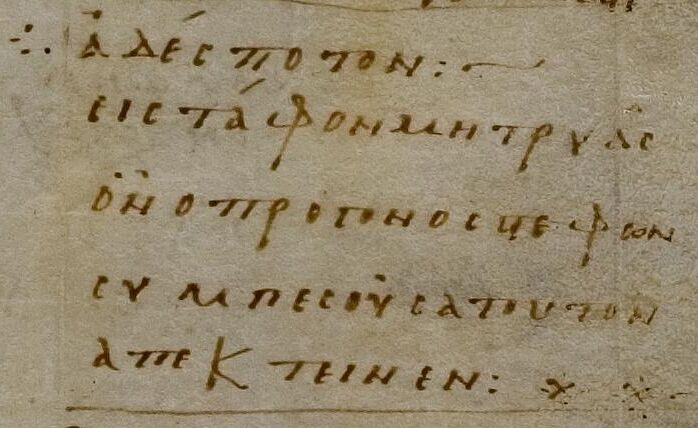 ἀδέσποτον:~
εις τάφον μητρυᾶς
ὃν ο προγονος στεφων
συμπεσοῦσα τουτον
απεκτεινεν: